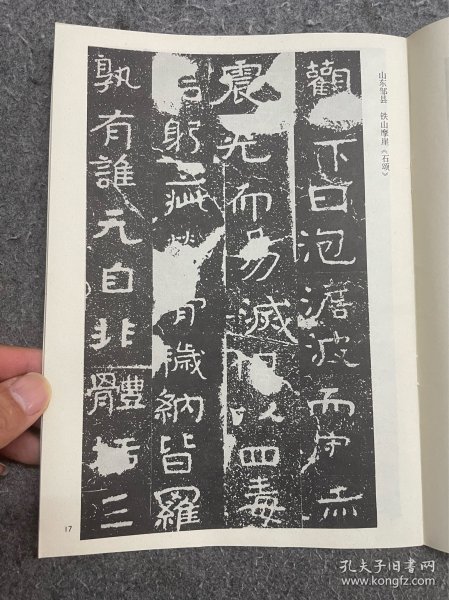 山东邹县 铁山摩崖《石颂》
觀下曰泡澹波而守赤
震光而易滅以四毒
躬二納皆羅
孰有誰元自非體括三
17
孔夫子旧书网
www.kongfz.com